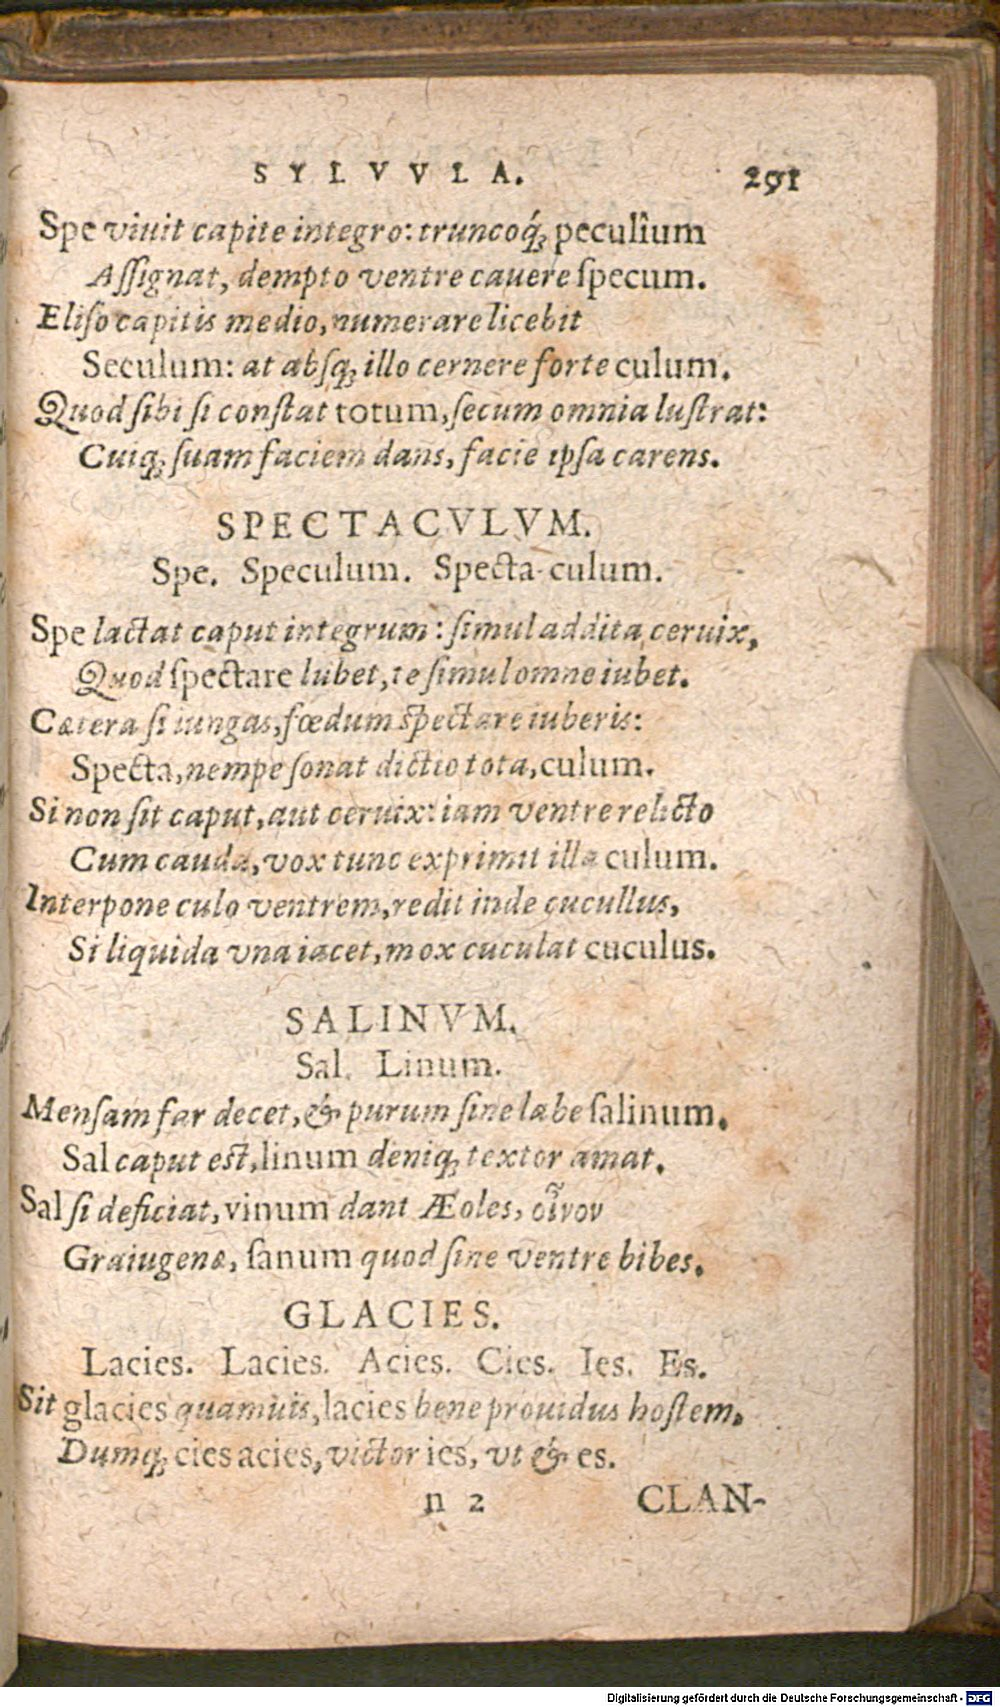 SYLVVLA. 291
Spe viuit capite integro: truncoq́; peculîum
Aſſignat, dempto ventre cauere ſpecum.
Eliſo capitis medio, numerare licebit
Seculum: at abſq; illo cernere forte culum.
Quod ſibi ſi conſtat totum, ſecum omnia luſtrat:
Cuiq; ſuam faciem dans, facie ipſa carens.
SPECTACVLVM.
Spe. Speculum. Specta-culum.
Spe lactat caput integrum: ſimul addita ceruix,
Quod ſpectare lubet, te ſimul omne iubet.
Cætera ſi iungas, fœdum ſpectare iuberis:
Specta, nempe ſonat dictio tota, culum.
Si non ſit caput, aut ceruix: iam ventre relicto
Cum cauda, vox tunc exprimit illa culum.
Interpone culo ventrem, redit inde cucullus,
Si liquida vna iacet, mox cuculat cuculus.
SALINVM.
Sal. Linum.
Menſam far decet, & purum ſine labe ſalinum.
Sal caput eſt, linum deniq; textor amat.
Sal ſi deficiat, vinum dant Æoles, οἶνον
Graiugenæ, ſanum quod ſine ventre bibes.
GLACIES.
Lacies. Lacies. Acies. Cies. Ies. Es.
Sit glacies quamuis, lacies bene prouidus hoſtem.
Dumq; cies acies, victor ies, vt & es.
n 2 CLAN-
Digitalisierung gefördert durch die Deutsche Forschungsgemeinschaft - DFG